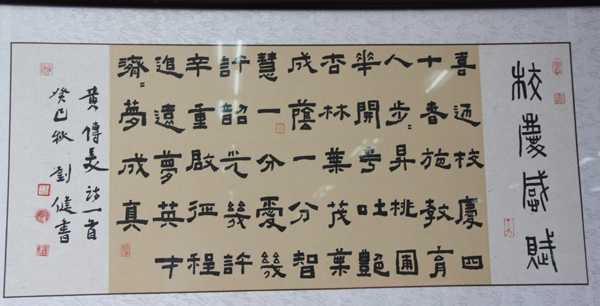 校慶感賦
喜迎校慶四
十春施教育
人步々昇桃圃
華開芳吐艷
杏林葉茂葉
成蔭一分智
慧一分愛幾
許韶光幾許
辛重啟征程
追遠夢英才
濟々夢成真
黄傳美詩一首
癸巳秋劉健書